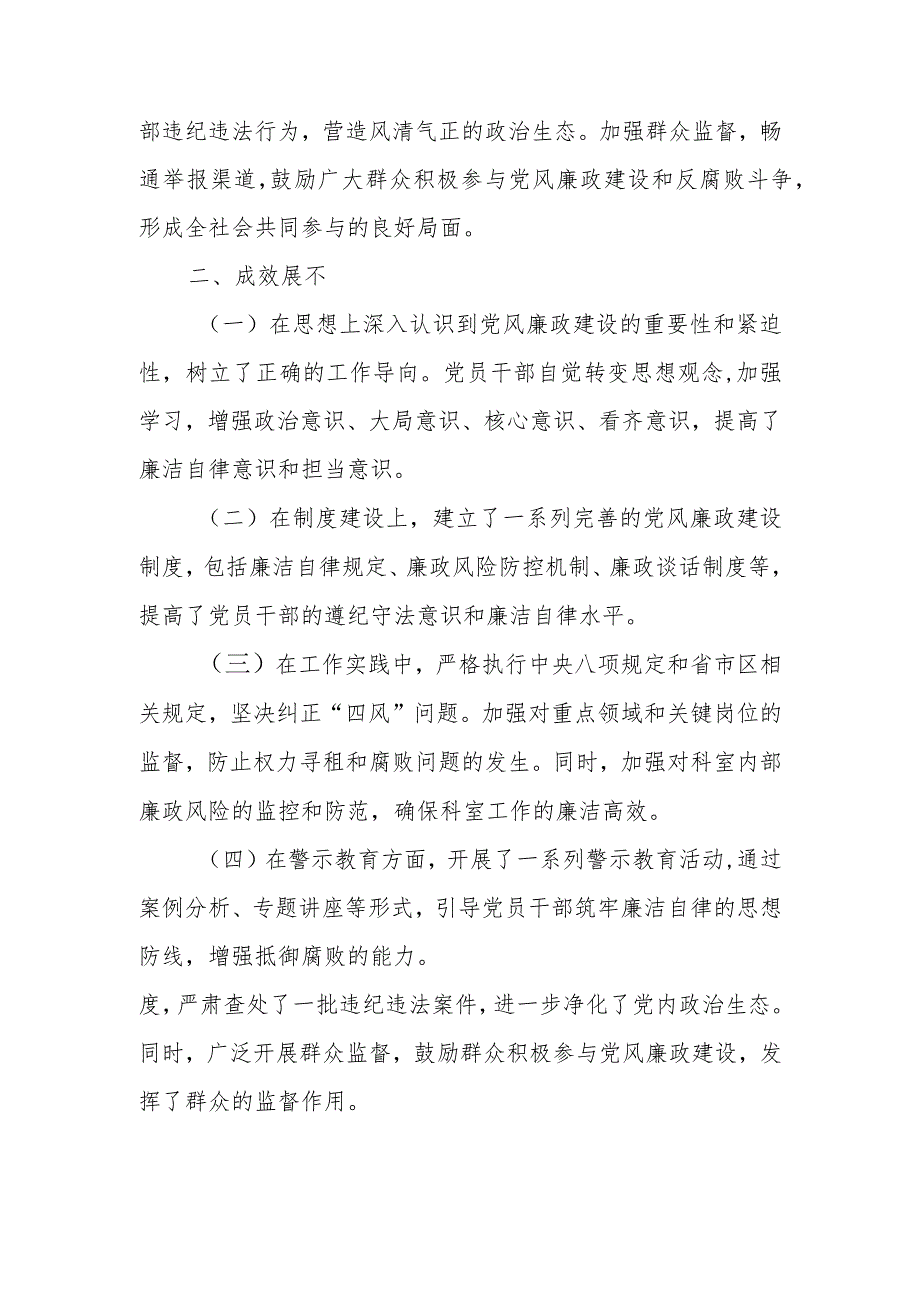 部违纪违法行为，营造风清气正的政治生态。加强群众监督，畅
通举报渠道,鼓励广大群众积极参与党风廉政建设和反腐败斗争,
形成全社会共同参与的良好局面。
二、成效展不
（一）在思想上深入认识到党风廉政建设的重要性和紧迫
性，树立了正确的工作导向。党员干部自觉转变思想观念,加强
学习，增强政治意识、大局意识、核心意识、看齐意识，提高了
廉洁自律意识和担当意识。
（二）在制度建设上，建立了一系列完善的党风廉政建设
制度，包括廉洁自律规定、廉政风险防控机制、廉政谈话制度等，
提高了党员干部的遵纪守法意识和廉洁自律水平。
（三）在工作实践中，严格执行中央八项规定和省市区相
关规定，坚决纠正“四风”问题。加强对重点领域和关键岗位的
监督，防止权力寻租和腐败问题的发生。同时，加强对科室内部
廉政风险的监控和防范，确保科室工作的廉洁高效。
（四）在警示教育方面，开展了一系列警示教育活动,通过
案例分析、专题讲座等形式，引导党员干部筑牢廉洁自律的思想
防线，增强抵御腐败的能力。
度，严肃查处了一批违纪违法案件，进一步净化了党内政治生态。
同时，广泛开展群众监督，鼓励群众积极参与党风廉政建设，发
挥了群众的监督作用。